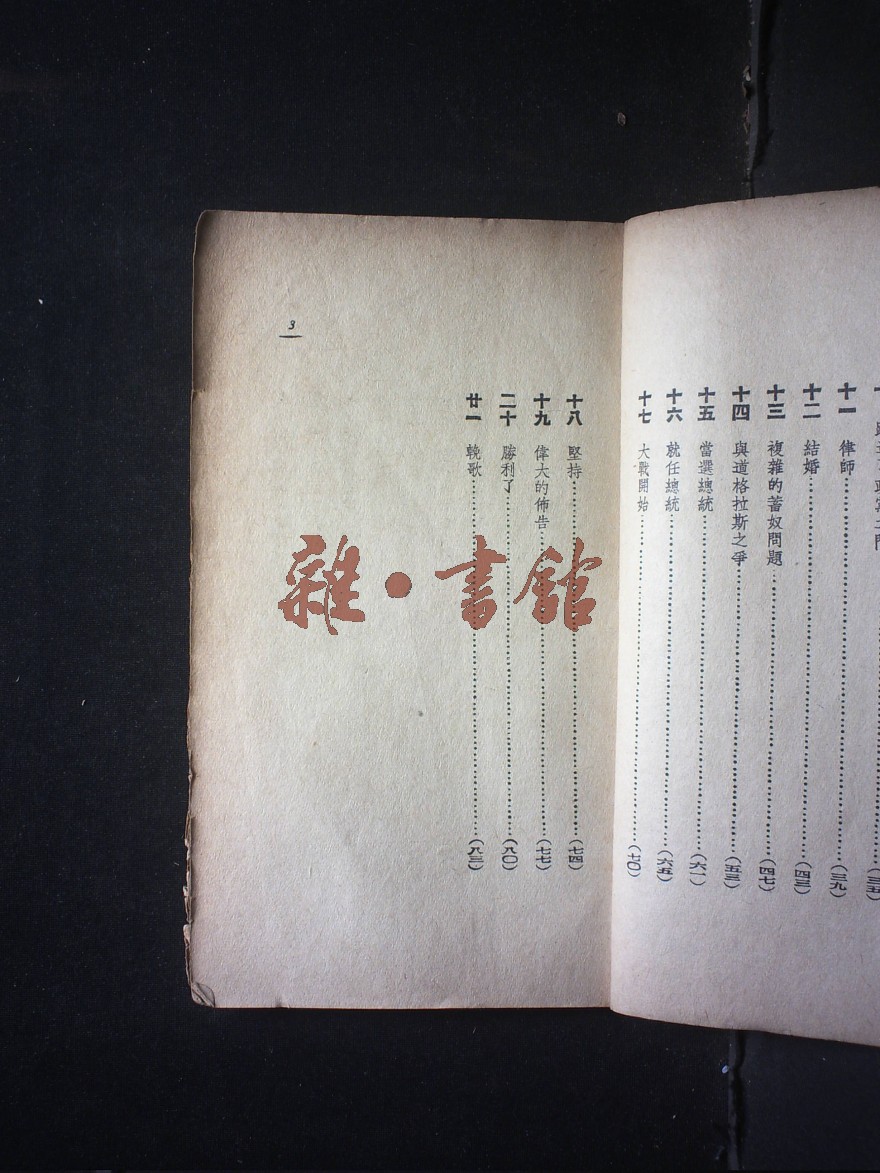 十一 律師……(三九)
十二 結婚……(四三)
十三 複雜的蓄奴問題……(四七)
十四 與道格拉斯之爭……(五三)
十五 當選總統……(六一)
十六 就任總統……(六五)
十七 大戰開始……(七〇)
十八 堅持……(七四)
十九 偉大的佈告……(七七)
二十 勝利了……(八〇)
廿一 輓歌……(八三)
3
雜·書館